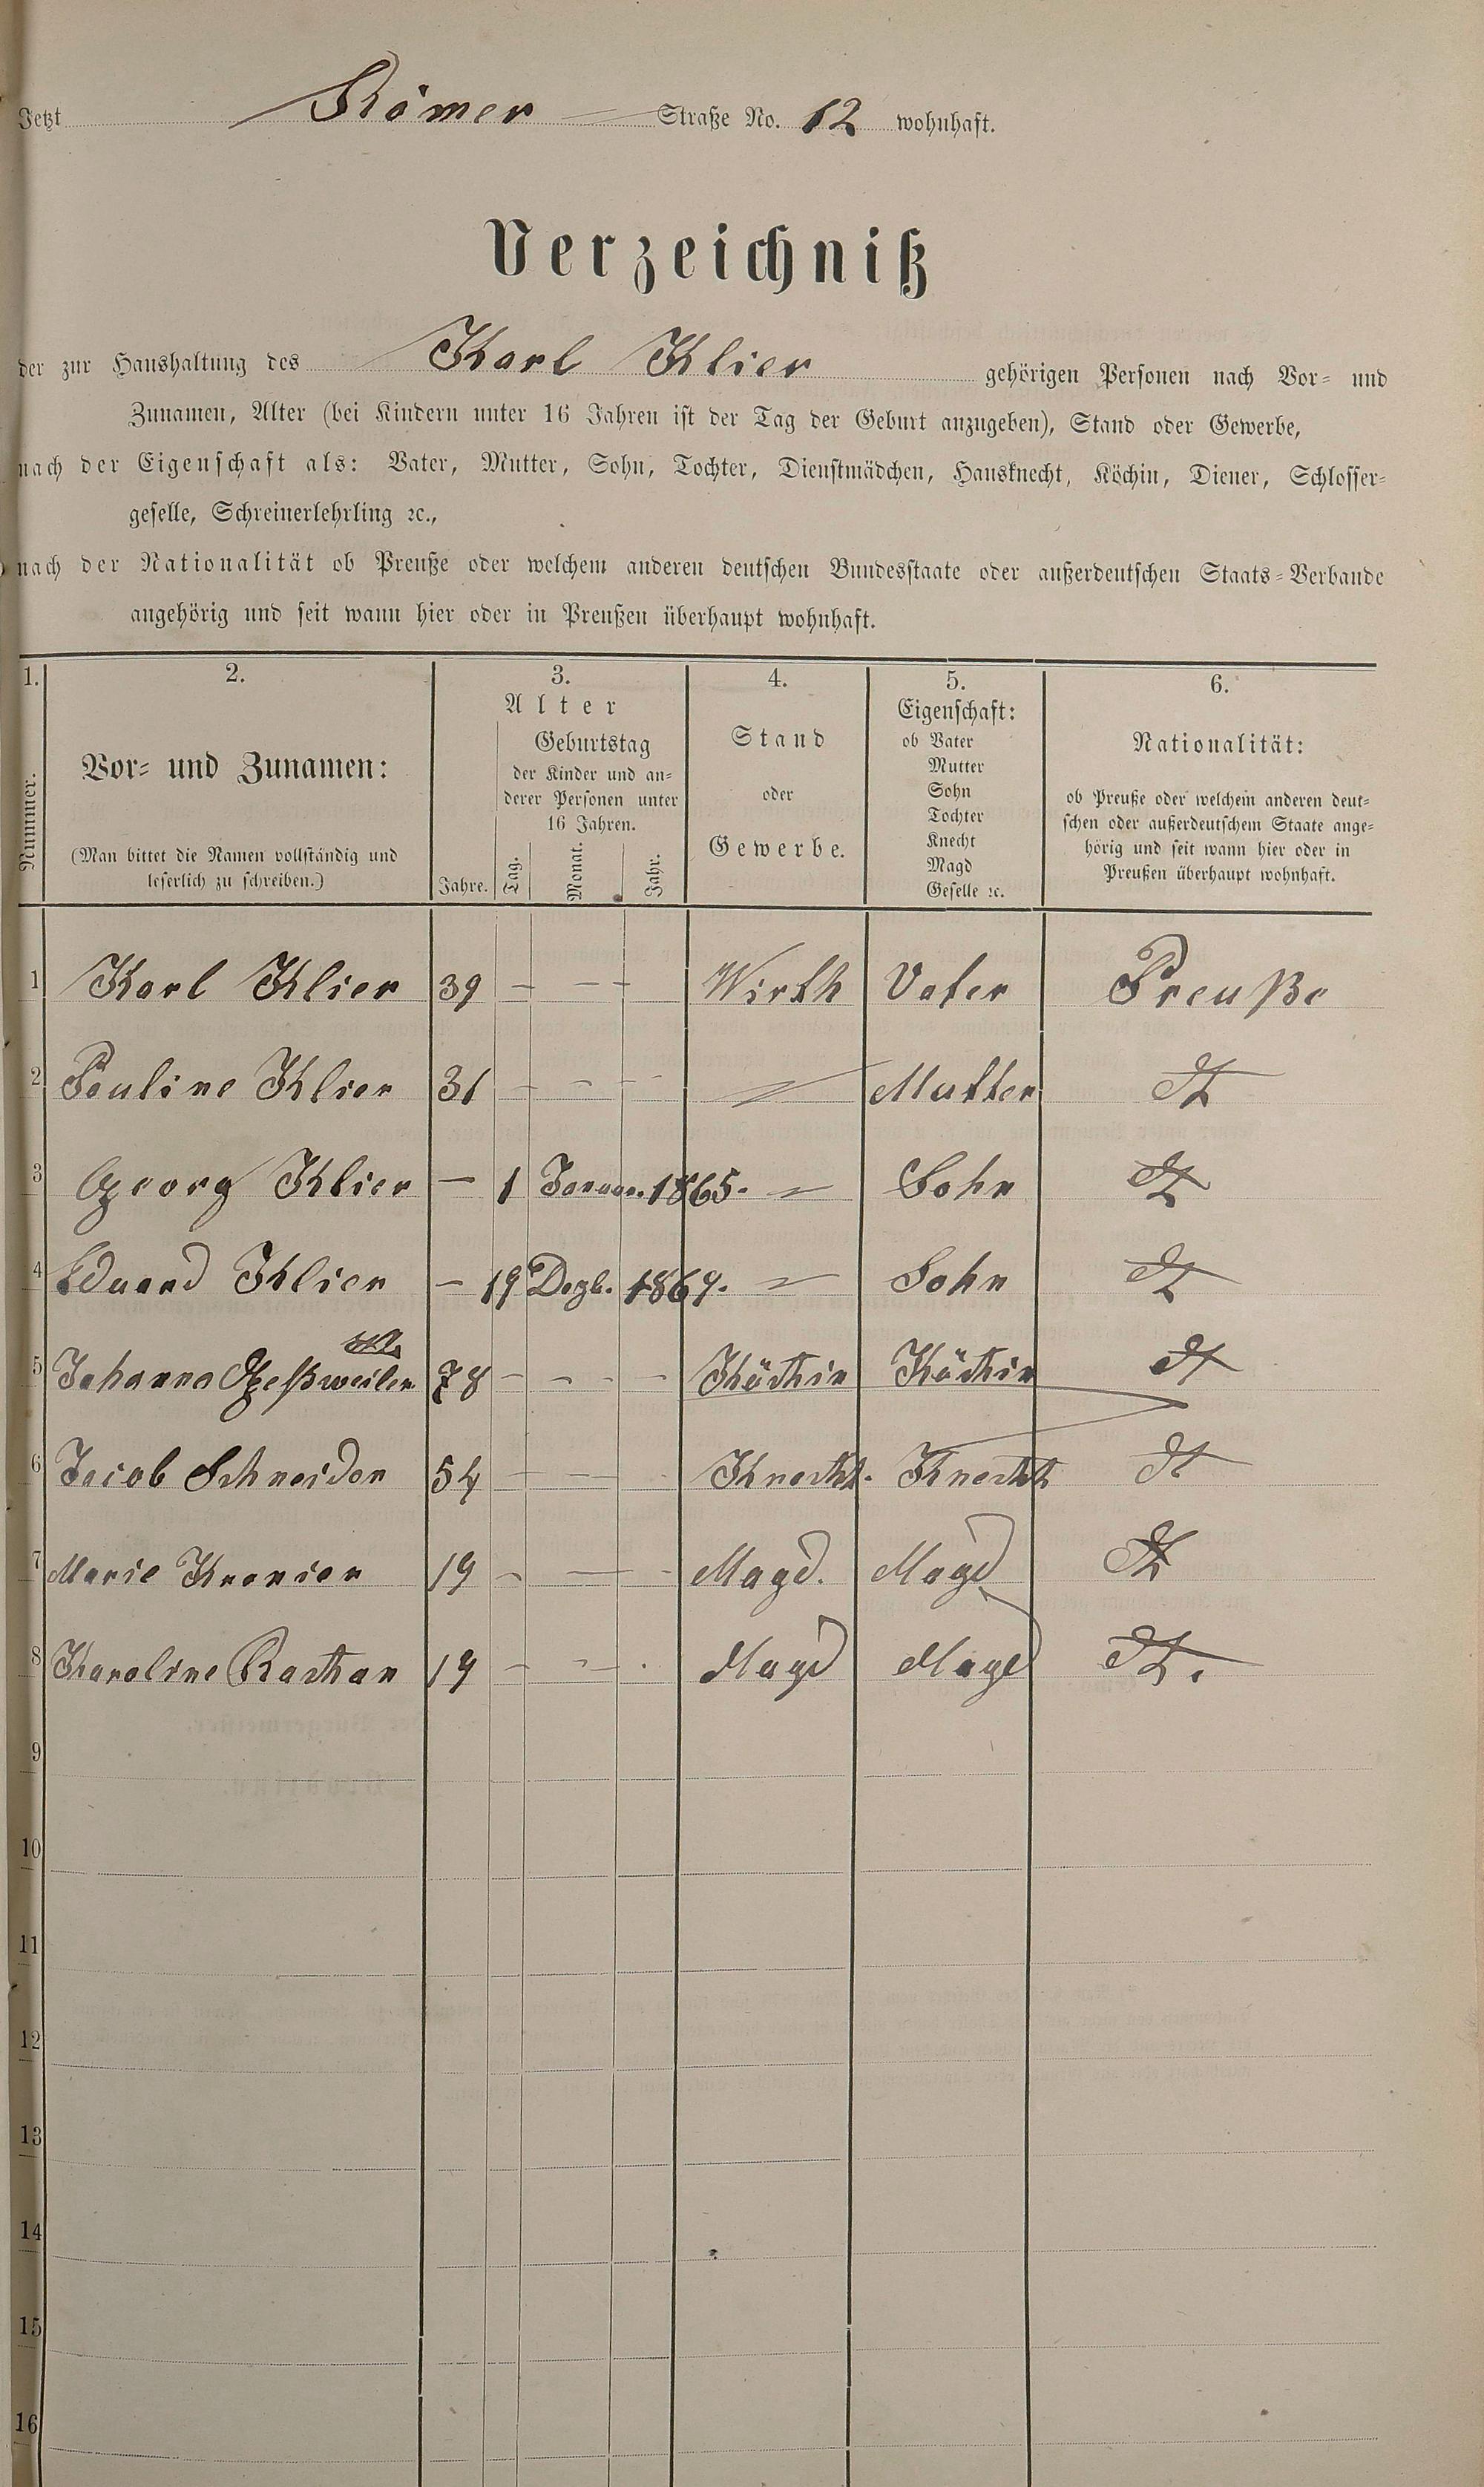 Jetzt Römer Straße No. 12 wohnhaft.
Verzeichniß
der zur Haushaltung des Karl Klier gehörigen Personen nach Vor- und
Zunamen, Alter (bei Kindern unter 16 Jahren ist der Tag der Geburt anzugeben), Stand oder Gewerbe,
nach der Eigenschaft als: Vater, Mutter, Sohn, Tochter, Dienstmädchen, Hausknecht, Köchin, Diener, Schlosser-
geselle, Schreinerlehrling ꝛc.,
nach der Nationalität ob Preuße oder welchem anderen deutschen Bundesstaate oder außerdeutschen Staats-Verbande
angehörig und seit wann hier oder in Preußen überhaupt wohnhaft.
1.
Nummer.
2.
Vor- und Zunamen:
(Man bittet die Namen vollständig und
leserlich zu schreiben.)
3.
Alter
Geburtstag
der Kinder und an-
derer Personen unter
16 Jahren.
Jahre. Tag. Monat. Jahr.
4.
Stand
oder
Gewerbe.
5.
Eigenschaft:
ob Vater
Mutter
Sohn
Tochter
Knecht
Magd
Geselle ꝛc.
6.
Nationalität:
ob Preuße oder welchem anderen deut-
schen oder außerdeutschem Staate ange-
hörig und seit wann hier oder in
Preußen überhaupt wohnhaft.
1 Karl Klier 39 – – – Wirth Vater Preuße
2 Pauline Klier 31 – – – – Mutter dt
3 Georg Klier – 1 Januar. 1865. – Sohn dt
4 Eduard Klier – 19 Dezb. 1869. – Sohn dt
5 Johanna Geßweiler 78 – – – Köchin Köchin dt
6 Jacob Schneider 54 – – – Knecht. Knecht dt
7 Marie 19 – – – Magd. Magd dt
8 Karoline 19 – – – Magd Magd dt.
9
10
11
12
13
14
15
16